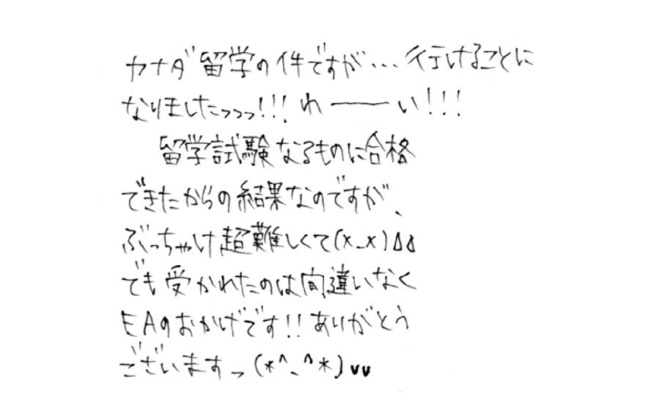 カナダ留学の件ですが…行けることに
なりましたっっっ!!!わーーい!!!
留学試験なるものに合格
できたからの結果なのですが、
ぶっちゃけ超難しくて(x_x)ΔΔ
でも受かれたのは間違いなく
EAのおかげです!!ありがとう
ございますっ(*^-^*)vv